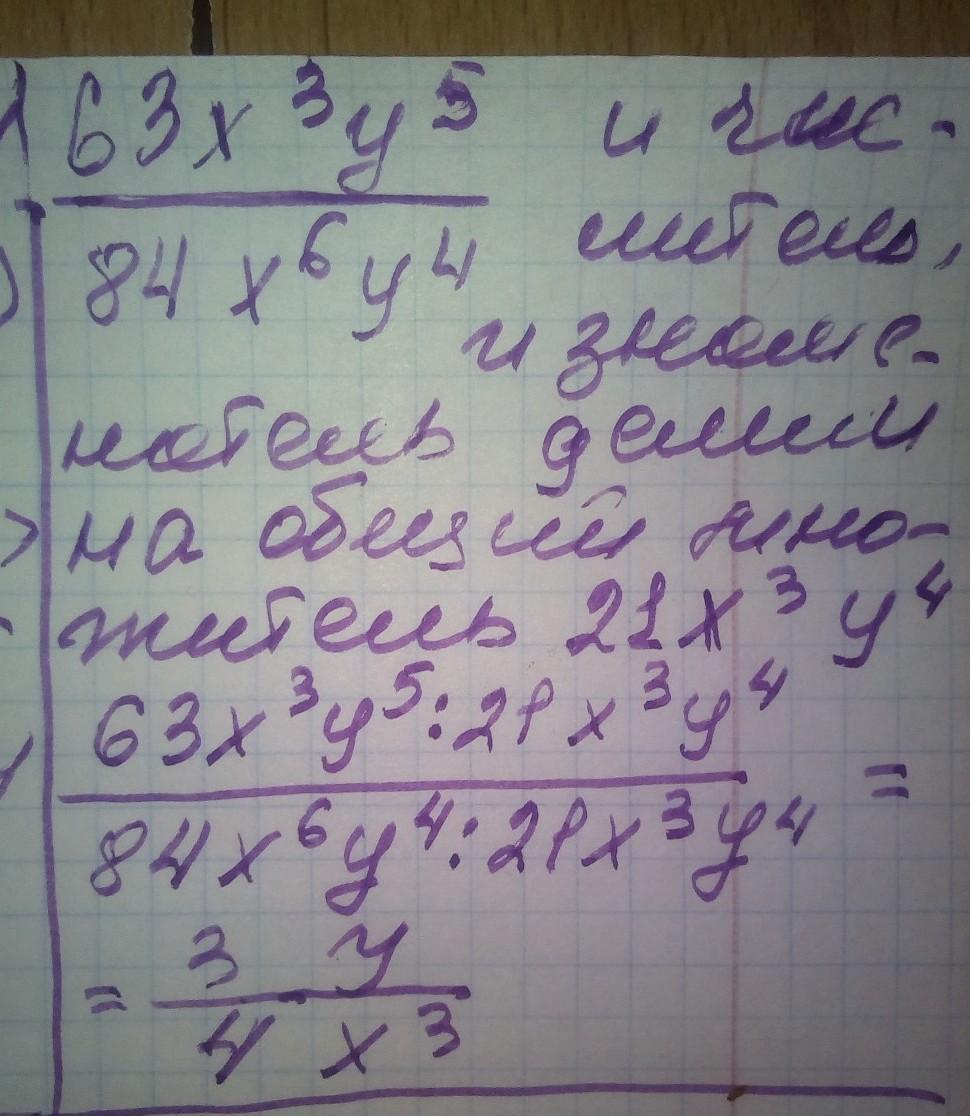 63x³y⁵ и чис-
84x⁶y⁴ литель,
и знаме-
натель делим
на общий мно-
житель 21x³y⁴
63x³y⁵:21x³y⁴
=
84x⁶y⁴:21x³y⁴
= 3 y
4 x³